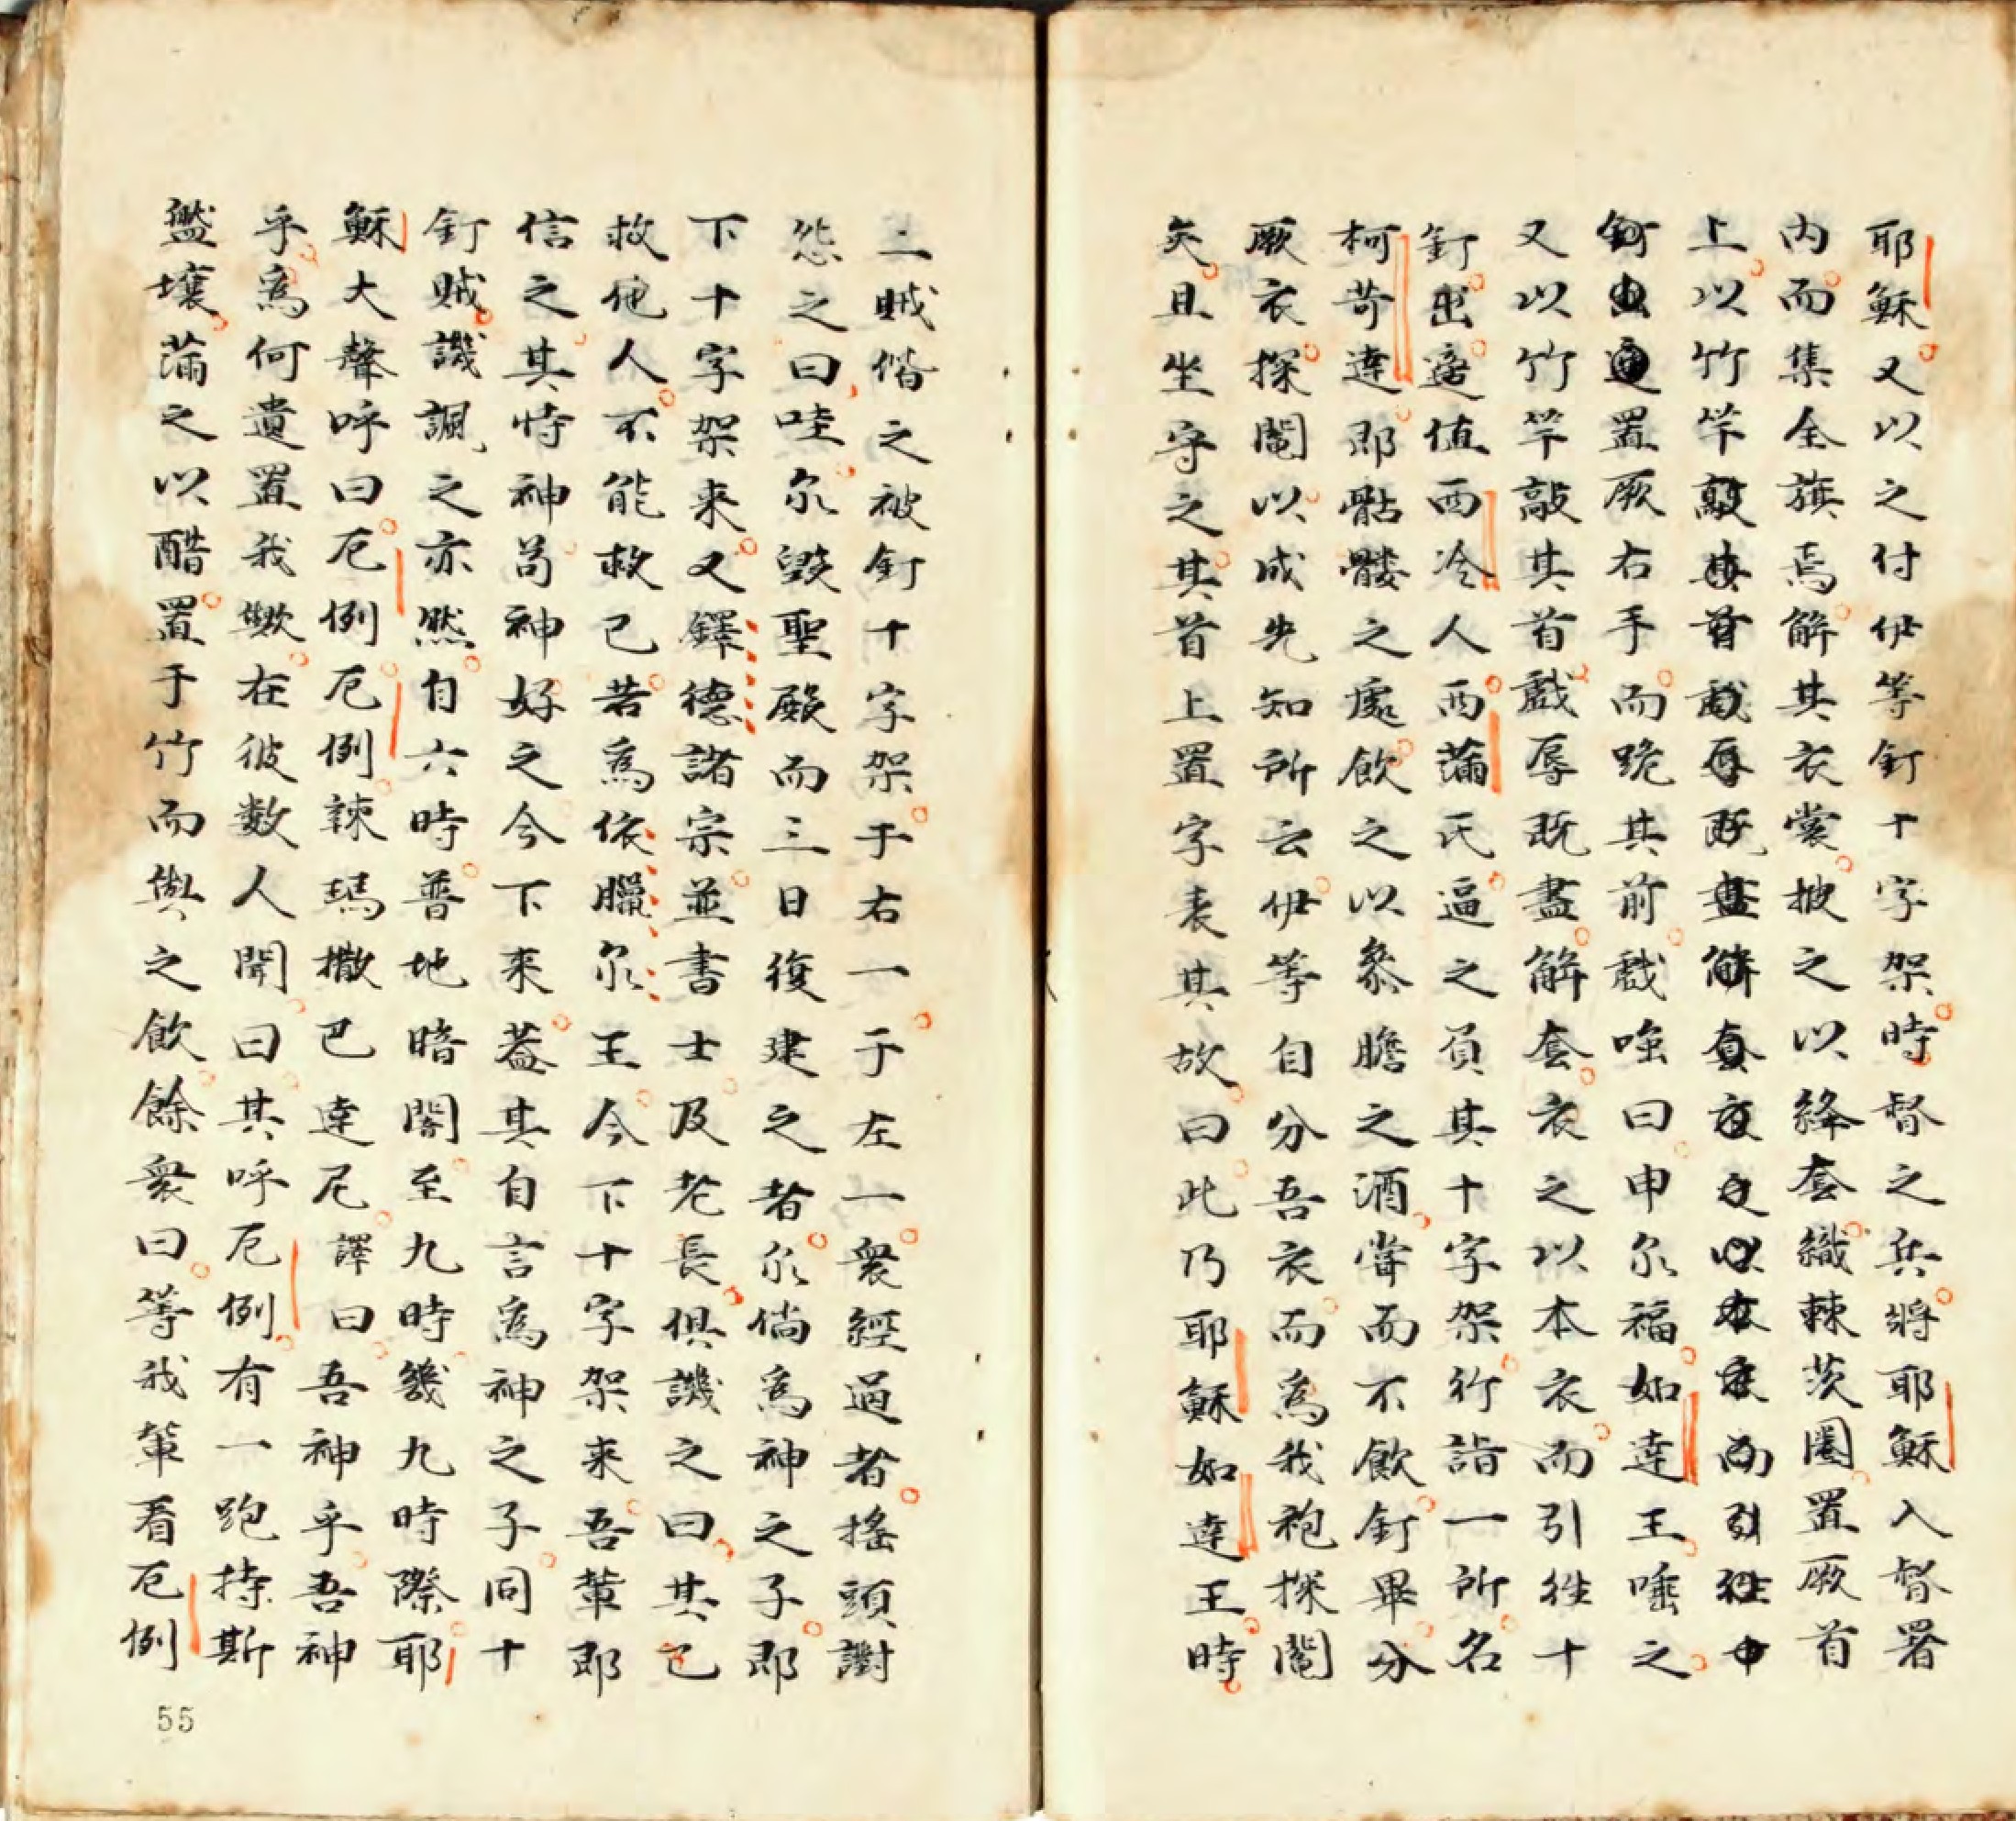 耶穌又以之付伊等釘十字架時督之兵將耶穌入督署
內而集全旗焉解其衣裳披之以絳套織棘茨圈置厥首
上以竹竿敲其首戲辱既盡解套衣之以本衣而引徃十
釘出置厥右手而跪其前戲唯曰申尔福如達王唾之
又以竹竿敲其首戲辱既盡解套衣之以本衣而引徃十
釘出適值西冷人西蒲氏逼之負其十字架行詣一所名
柯苛達即骷髏之處飲之以叅膽之酒甞而不飲釘畢分
厥衣探鬮以成先知所云伊等自分吾衣而為我袍探鬮
矣且坐守之其首上置字表其故曰此乃耶穌如達王時
二賊偕之被釘十字架于右一于左一衆經過者搖頭謝
怨之曰哇尔毀聖殿而三日復建之者尔倘為神之子即
下十字架来又鐸德諸宗並書士及老長俱譏之曰其已
救他人不能救己若為依臘尔王今下十字架来吾輩即
信之其恃神苟神好之今下来葢其自言為神之子同十
釘賊譏諷之亦然自六時普地暗闇至九時幾九時際耶
穌大聲呼曰厄例厄例諫瑪撒巴達尼譯曰吾神乎吾神
乎為何遺置我歟在彼数人聞曰其呼厄例有一跑持斯
盤壤蒲之以醋置于竹而與之飲餘衆曰等我輩看厄例
55